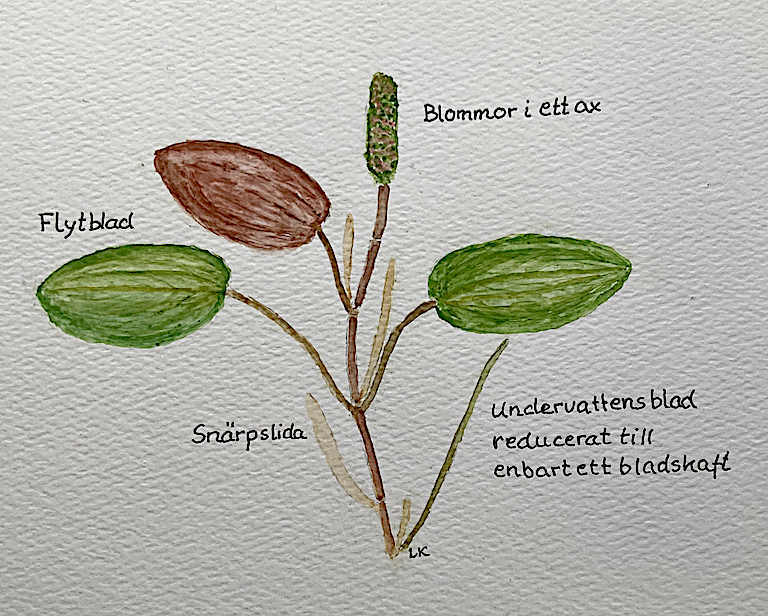 Blommor i ett ax
Flytblad
Snärpslida
Undervattensblad
reducerat till
enbart ett bladskaft
LK